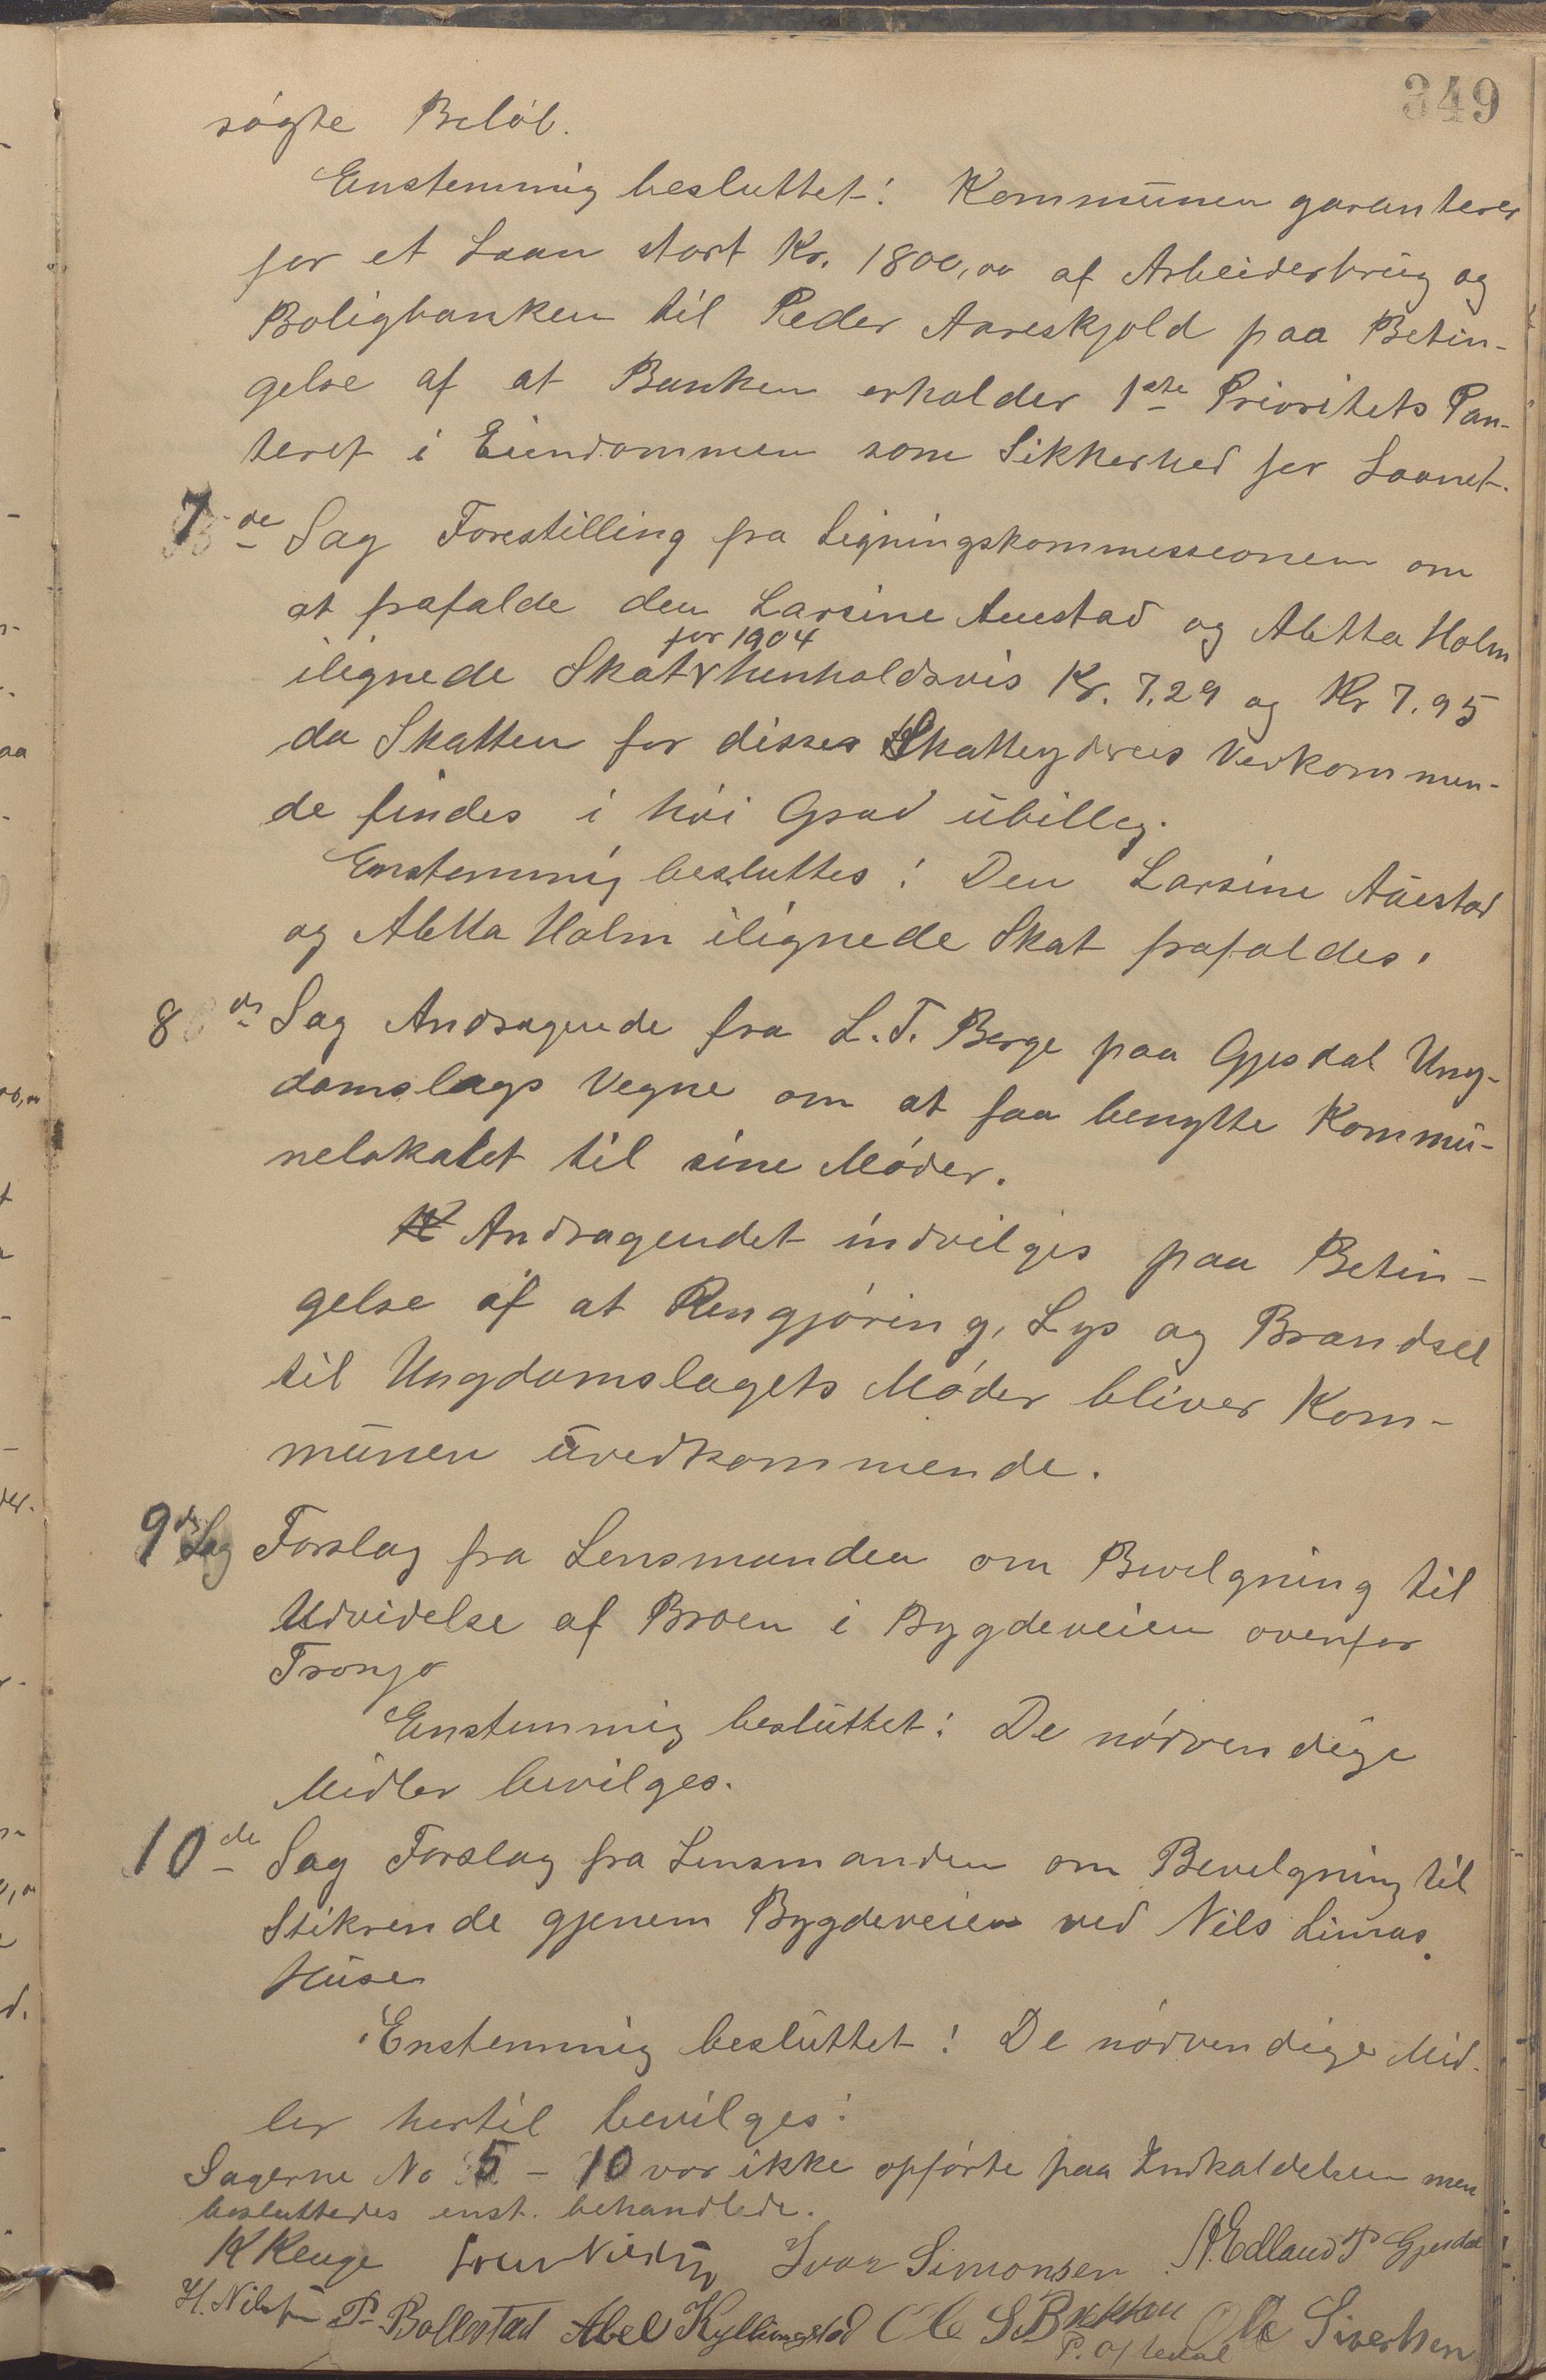 349
søgte Beløb.
Enstemmig besluttet: Kommunen garanterer
for et Laan stort Kr. 1800,00 af Arbeiderbrug og
Boligbanken til Peder Aareskjold paa Betin-
gelse af at Banken erholder 1ste Prioritets Pan-
teret i Eiendommen som Sikkerhed for Laanet.
7de Sag Forestilling fra Ligningskommissionen om
at frafalde den Larsine Auestad og Abtta Holm
for 1904
ilignede Skat henholdsvis Kr. 7,29 og Kr 7.95
da Skatten for disses Skatteyderes Vedkommen-
de findes i høi Grad ubillig.
Enstemmig besluttes: Den Larsine Auestad
og Abtta Holm ilignede Skat frafaldes.
8de Sag Andragende fra L. T. Berge paa Gjesdal Ung-
domslags Vegne om at faa benytte Kommu-
nelokalet til sine Møder.
Andragendet indvilges paa Betin-
gelse af at Rengjøring, Lys og Brændsel
til Ungdomslagets Møder bliver Kom-
munen uvedkommende.
9de Sag Forslag fra Lensmanden om Bevilgning til
Udvidelse af Broen i Bygdeveien ovenfor
Fronjo
Enstemmig besluttet: De nødvendige
Midler bevilges.
10de Sag Forslag fra Lensmanden om Bevilgning til
Stikrende gjenem Bygdeveien ved Nils Limas
Huse
Enstemmig besluttet: De nødvendige Mid-
ler hertil bevilges:
Sagerne No 5 - 10 var ikke opførte paa Indkaldelsen men
besluttedes enst. behandlede.
K Kluge Ivar Simonsen A. Edland P Gjesdal
H. Nilsen P. Bollestad Abel Kyllingstad Ole S Bækken Ole Sivertsen